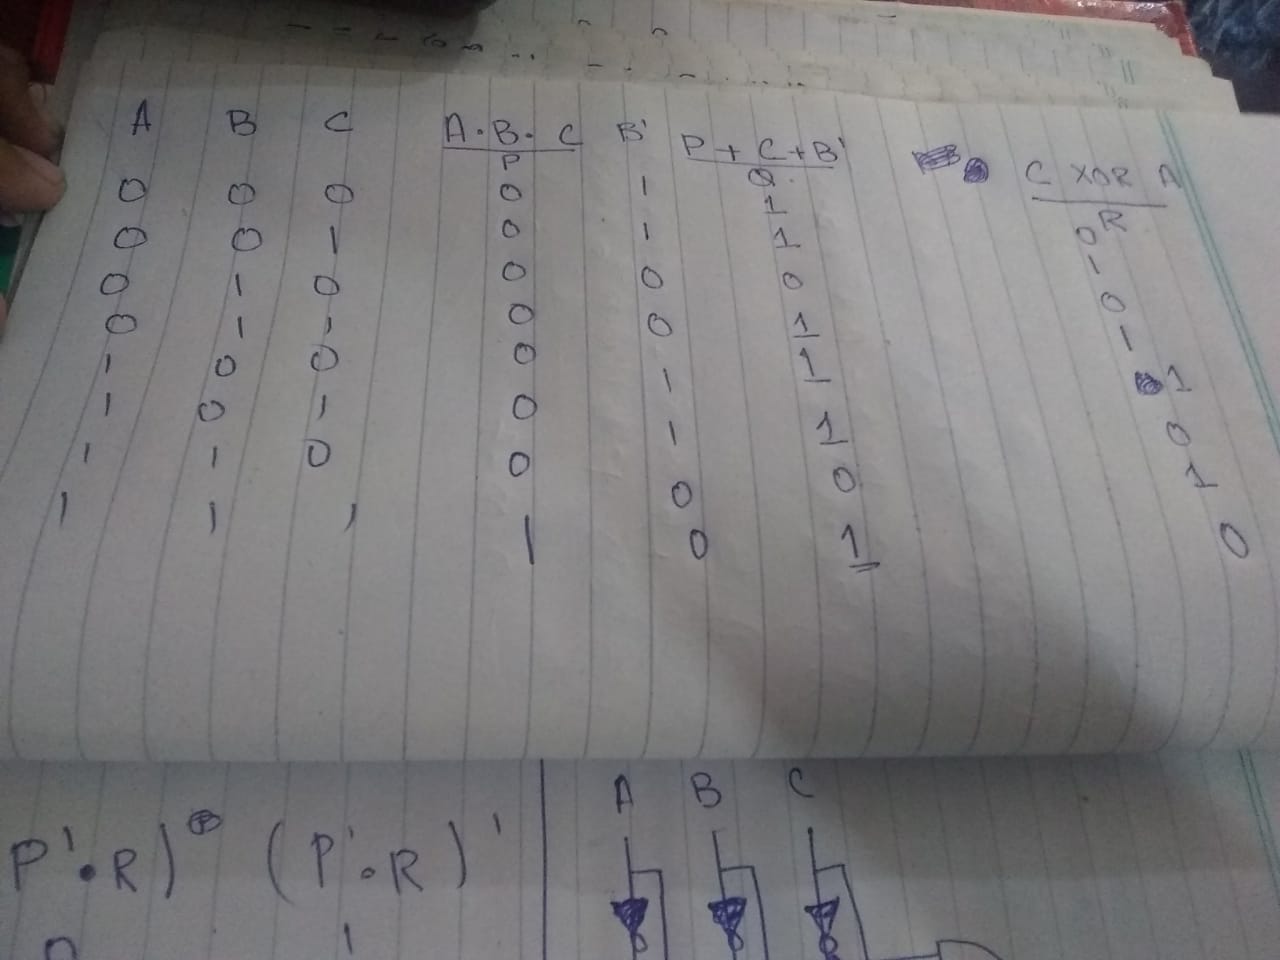 A B C A·B·C B' P + C + B' C XOR A
P R
0 0 0 0 1 0 0
1
0 0 1 0 1 1 1
0 1 0 0 0 0 0
0 1 1 0 0 1 1
1 0 0 0 1 1 1
1 0 1 0 1 1 0
1 1 0 0 0 0 1
1 1 1 1 0 1 0
P'·R) (P'·R)'
0 1
A B C